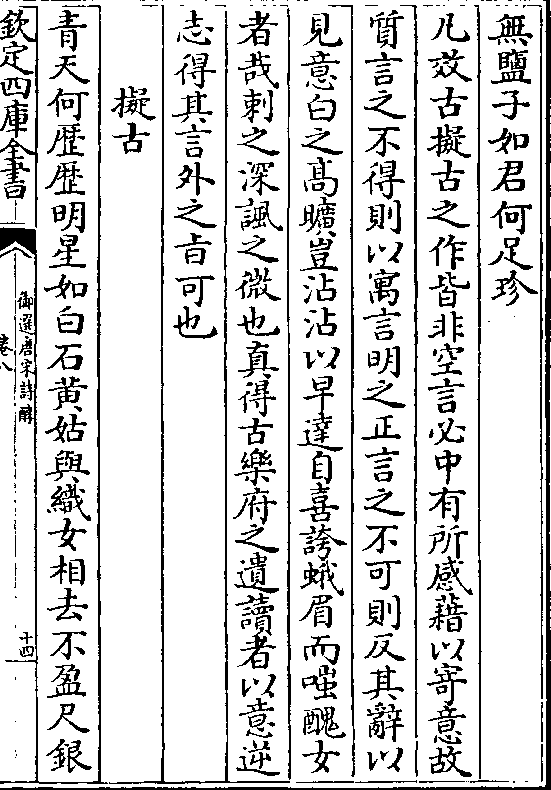 無鹽子如君何足珍
凡效古擬古之作皆非空言必中有所感藉以寄意故
質言之不得則以寓言明之正言之不可則反其辭以
見意白之髙曠豈沾沾以早達自喜誇蛾眉而嗤醜女
者哉刺之深諷之微也真得古樂府之遺讀者以意逆
志得其言外之㫖可也
擬古
青天何歴歴明星如白石黄姑與織女相去不盈尺銀
欽定四庫全書
御選唐宋詩醇
卷八
十四